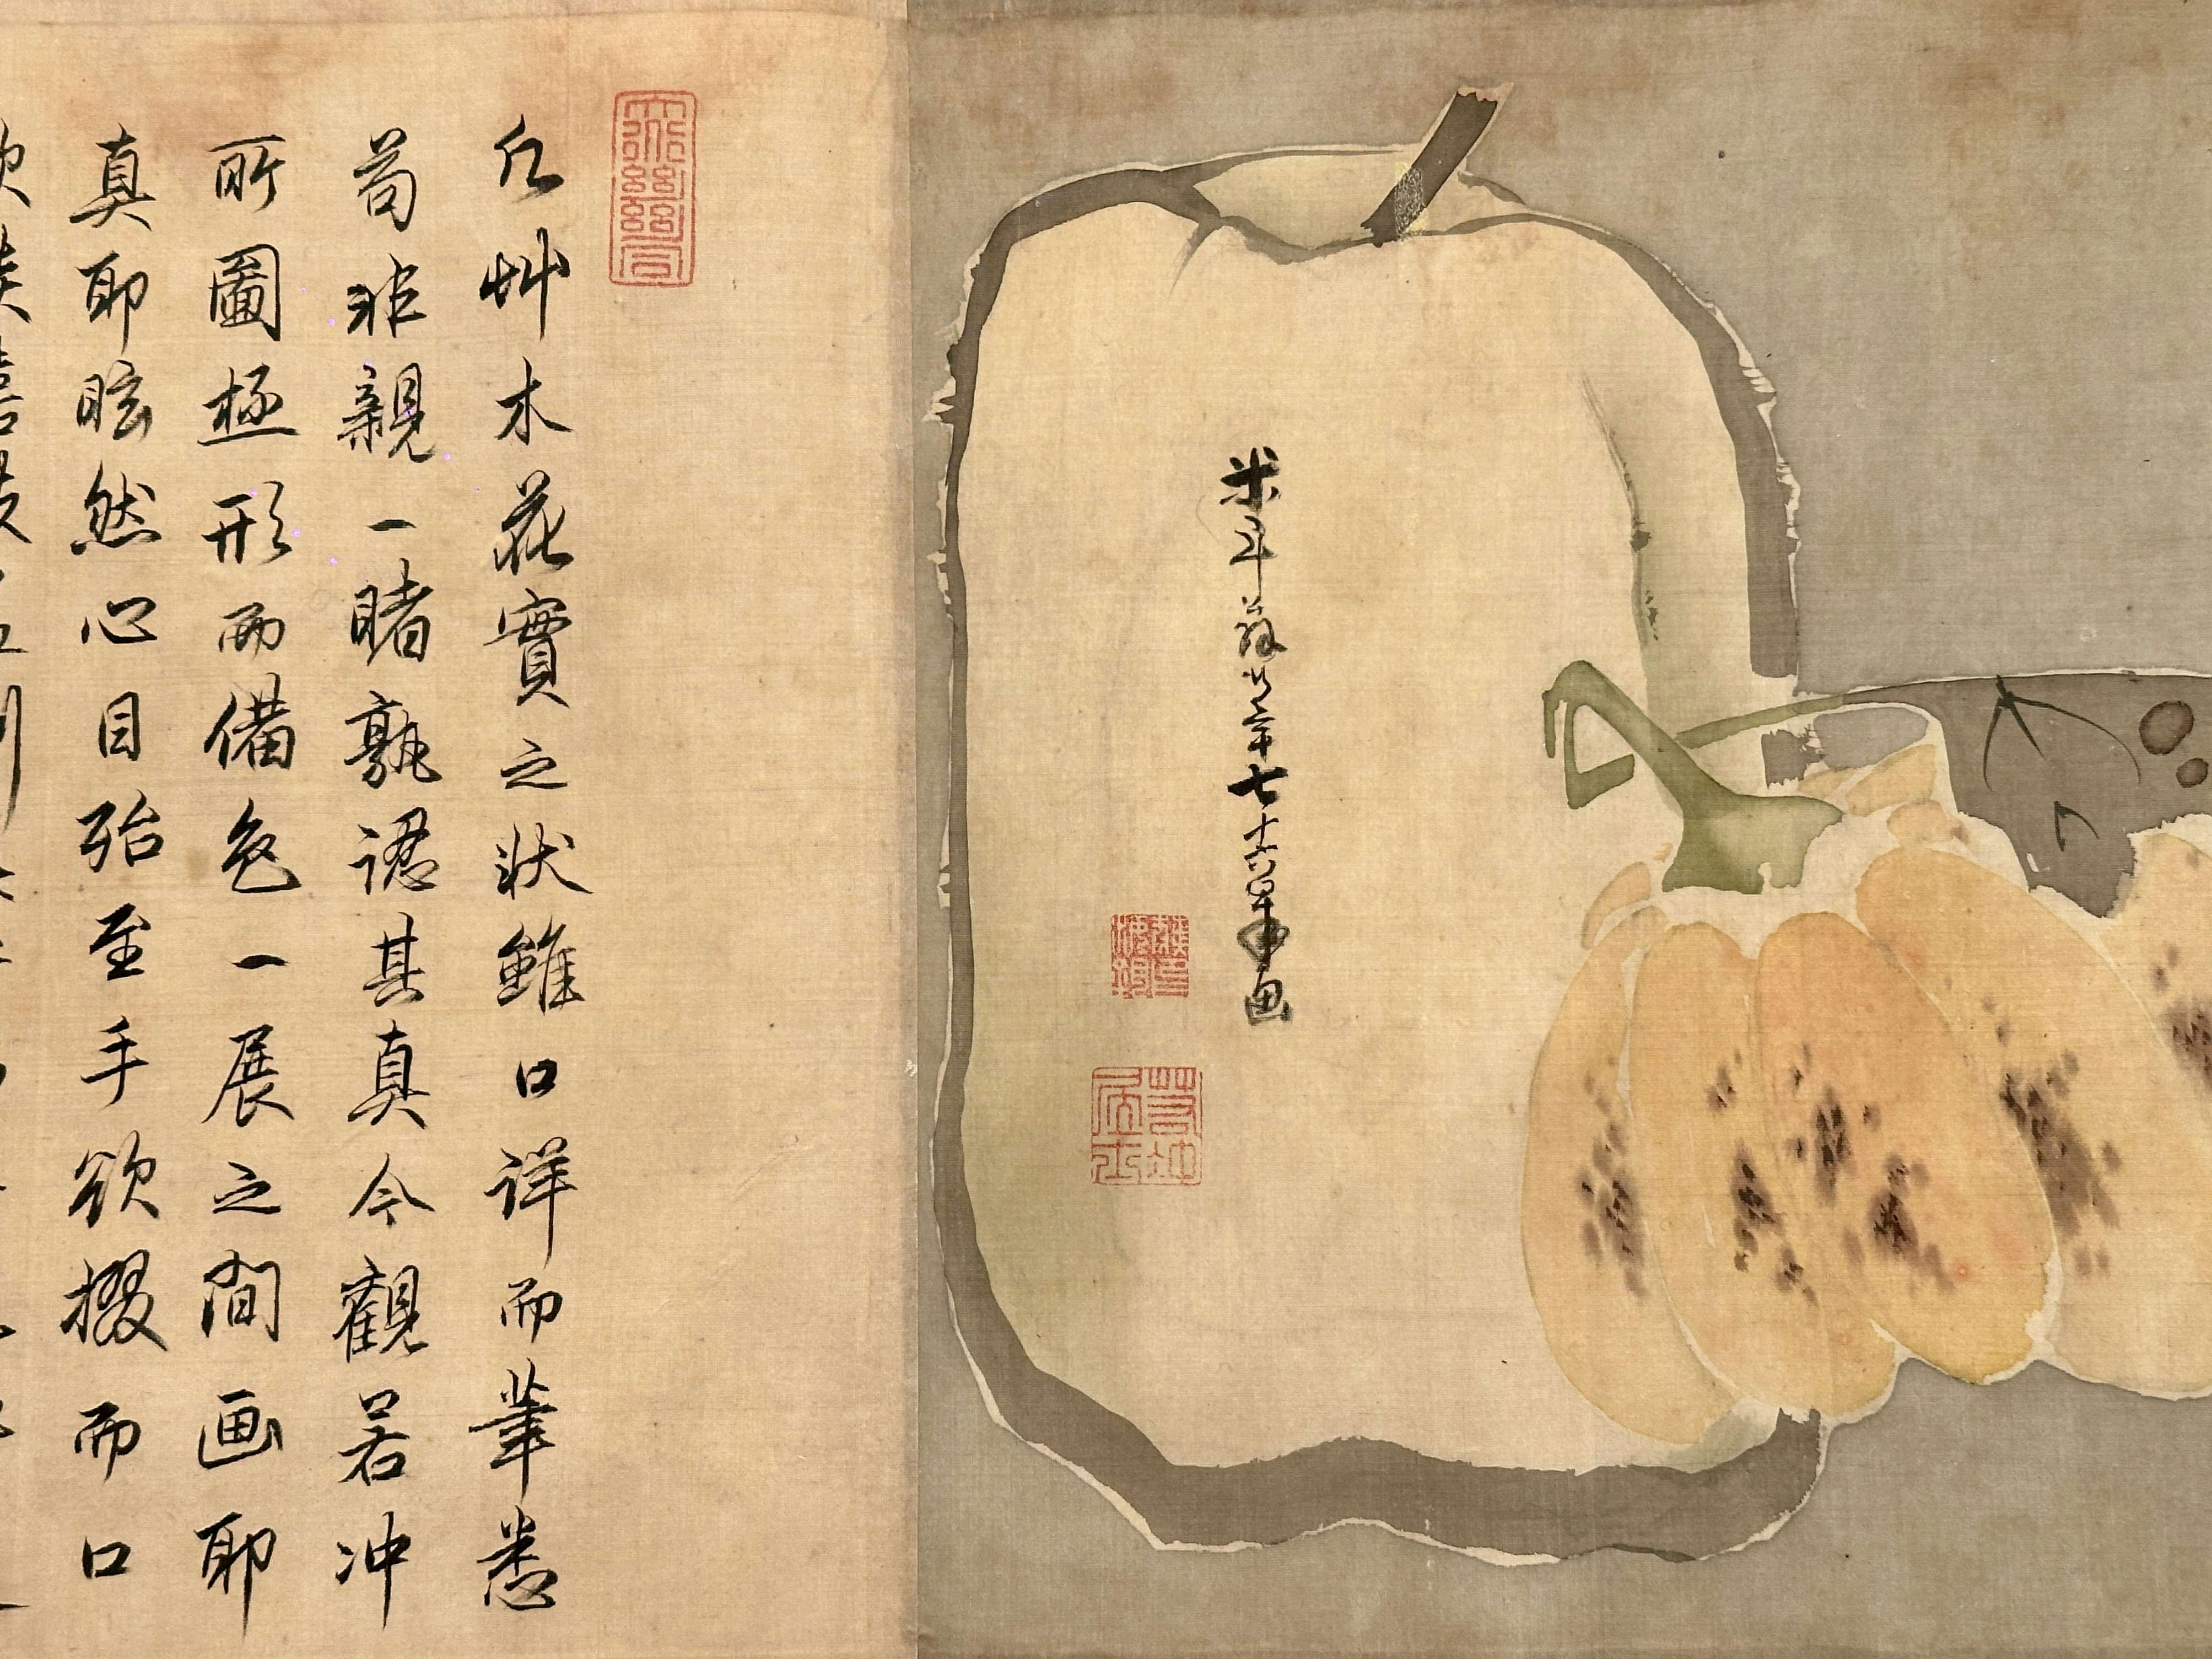 米斗
七十六
画
若冲居士
凡艸木花實之狀雖口詳而筆悉
苟非親一睹孰認其真今觀若冲
所圖極形而備色一展之間画耶
真耶眩然心目殆至手欲掇而口